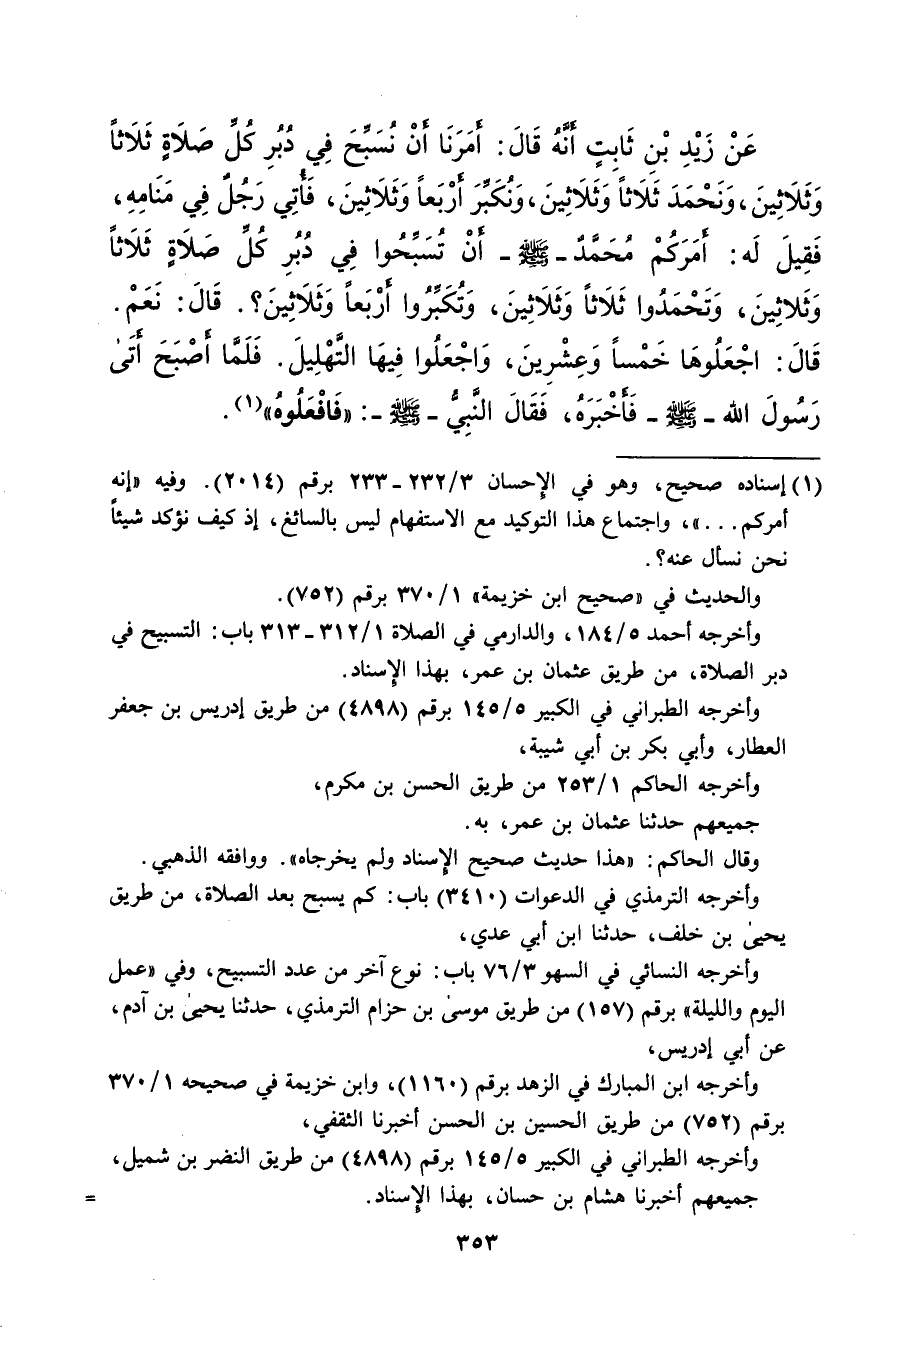 عَنْ زَيْدِ بْنِ ثَابِتٍ أَنَّهُ قَالَ: أَمَرَنَا أَنْ نُسَبِّحَ فِي دُبُرِ كُلِّ صَلَاةٍ ثَلَاثاً
وَثَلَاثِينَ، وَنَحْمَدَ ثَلَاثاً وَثَلَاثِينَ، وَنُكَبِّرَ أَرْبَعاً وَثَلَاثِينَ، فَأُتِي رَجُلٌ فِي مَنَامِهِ،
فَقِيلَ لَه: أَمَرَكُمْ مُحَمَّدٌ ـ ﷺ ـ أَنْ تُسَبِّحُوا فِي دُبُرِ كُلِّ صَلَاةٍ ثَلَاثاً
وَثَلاثِينَ، وَتَحْمَدُوا ثَلَاثاً وَثَلَاثِينَ، وَتُكَبِّرُوا أَرْبَعاً وَثَلَاثِينَ؟. قَالَ: نَعَمْ.
قَالَ: اجْعَلُوهَا خَمْساً وَعِشْرِينَ، وَاجْعَلُوا فِيهَا التَّهْلِيلَ. فَلَمَّا أَصْبَحَ أَتَىٰ
رَسُولَ الله ـ ﷺ ـ فَأَخْبَرَهُ، فَقَالَ النَّبِيُّ ـ ﷺ ـ: «فَافْعَلُوهُ»(١).
(١) إسناده صحيح، وهو في الإحسان ٢٣٢/٣ ـ ٢٣٣ برقم (٢٠١٤). وفيه «إنه
أمركم...»، واجتماع هذا التوكيد مع الاستفهام ليس بالسائغ، إذ كيف نؤكد شيئاً
نحن نسأل عنه؟.
والحديث في «صحيح ابن خزيمة» ٣٧٠/١ برقم (٧٥٢).
وأخرجه أحمد ١٨٤/٥، والدارمي في الصلاة ٣١٢/١ ـ ٣١٣ باب: التسبيح في
دبر الصلاة، من طريق عثمان بن عمر، بهذا الإسناد.
وأخرجه الطبراني في الكبير ١٤٥/٥ برقم (٤٨٩٨) من طريق إدريس بن جعفر
العطار، وأبي بكر بن أبي شيبة،
وأخرجه الحاكم ٢٥٣/١ من طريق الحسن بن مكرم،
جميعهم حدثنا عثمان بن عمر، به.
وقال الحاكم: «هذا حديث صحيح الإسناد ولم يخرجاه». ووافقه الذهبي.
وأخرجه الترمذي في الدعوات (٣٤١٠) باب: كم يسبح بعد الصلاة، من طريق
يحيىٰ بن خلف، حدثنا ابن أبي عدي،
وأخرجه النسائي في السهو ٧٦/٣ باب: نوع آخر من عدد التسبيح، وفي «عمل
اليوم والليلة» برقم (١٥٧) من طريق موسىٰ بن حزام الترمذي، حدثنا يحيىٰ بن آدم،
عن أبي إدريس،
وأخرجه ابن المبارك في الزهد برقم (١١٦٠)، وابن خزيمة في صحيحه ٣٧٠/١
برقم (٧٥٢) من طريق الحسين بن الحسن أخبرنا الثقفي،
وأخرجه الطبراني في الكبير ١٤٥/٥ برقم (٤٨٩٨) من طريق النضر بن شميل،
جميعهم أخبرنا هشام بن حسان، بهذا الإسناد. =
٣٥٣